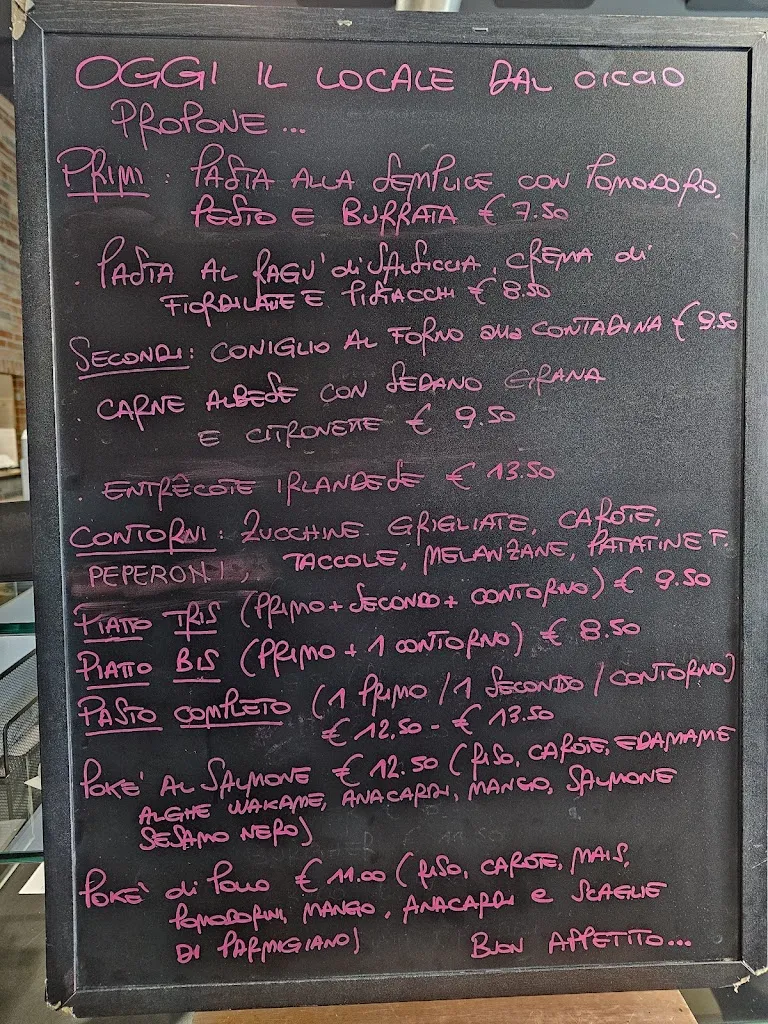 OGGI IL LOCALE DAL CICCIO
PROPONE ...
PRIMI : PASTA ALLA SEMPLICE CON POMODORO,
PESTO E BURRATA € 7.50
. PASTA AL RAGU' di SALSICCIA, CREMA di
FIORDILATTE E PISTACCHI € 8.50
SECONDI : CONIGLIO AL FORNO alla CONTADINA € 9.50
. CARNE ALBESE CON SEDANO GRANA
E CITRONETTE € 9.50
. ENTRÊCOTE IRLANDESE € 13.50
CONTORNI : ZUCCHINE GRIGLIATE, CAROTE,
PEPERONI, TACCOLE, MELANZANE, PATATINE F.
PIATTO TRIS (PRIMO + SECONDO + CONTORNO) € 9.50
PIATTO BIS (PRIMO + 1 CONTORNO) € 8.50
PASTO COMPLETO (1 PRIMO / 1 SECONDO / CONTORNO)
€ 12.50 - € 13.50
POKE' AL SALMONE € 12.50 (RISO, CAROTE, EDAMAME
ALGHE WAKAME, ANACARDI, MANGO, SALMONE
SESAMO NERO)
POKE' di POLLO € 11.00 (RISO, CAROTE, MAIS,
POMODORINI, MANGO, ANACARDI e SCAGLIE
DI PARMIGIANO) BUON APPETITO...